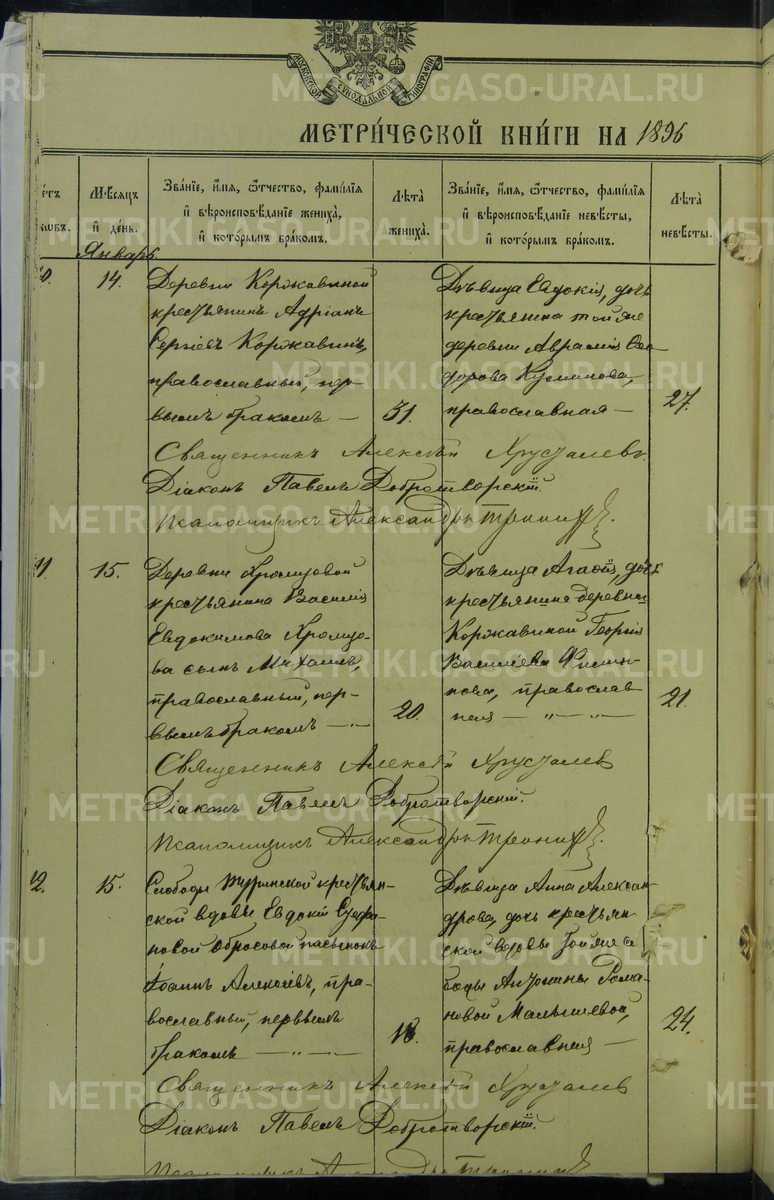 МОСКОВСКОЙ СѴНОДАЛЬНОЙ ТИПОГРАФІИ
МЕТРИ́ЧЕСКОЙ КНИ́ГИ НА 1896
Мѣсяцъ и день.
Зва́нїе, и҆́мя, ѻ҆́тчество, фами́лїя и҆ вѣроисповѣ́данїе жениха̀, и҆ кото́рымъ бра́комъ.
Лѣ́та жениха̀.
Зва́нїе, и҆́мя, ѻ҆́тчество, фами́лїя и҆ вѣроисповѣ́данїе невѣ́сты, и҆ кото́рымъ бра́комъ.
Лѣ́та невѣ́сты.
Январь
14.
Деревни Коржавиной
крестьянинъ Адріанъ
Сергіевъ Коржавинъ,
православный, пер-
вымъ бракомъ —
31.
Дѣвица Евдокія, дочь
крестьянина той же
деревни Авраамія Ѳео-
дорова Кузминова,
православная —
27.
Священникъ Алексѣй Хрусталевъ.
Діаконъ Павелъ Добротворскій.
Псаломщикъ Александръ
11.
15.
Деревни Хромцовой
крестьянина Василія
Евдокимова Хромцо-
ва сынъ Михаилъ,
православный, пер-
вымъ бракомъ —„—
20.
Дѣвица Агаѳія, дочь
крестьянина деревни
Коржавиной Георгія
Василіева Филин-
кова, православ
ная — „ — „ —
21.
Священникъ Алексѣй Хрусталев
Діаконъ Павелъ Добротворскій.
Псаломщикъ Александръ
12.
15.
Слободы Туринской крестьян-
ской вдовы Евдокіи Стефа-
новой Обросовой пасынокъ
Іоаннъ Алексіевъ, пра-
вославный, первымъ
бракомъ — „ — „ —
18.
Дѣвица Анна Алексан-
дрова, дочь крестьян-
ской вдовы той же сло
боды Антонины Рома-
новой Малышевой,
православная —
24.
Священникъ Алексѣй Хрусталев
Діаконъ Павелъ Добротворскій.
Псаломщикъ
METRIKI.GASO-URAL.RU